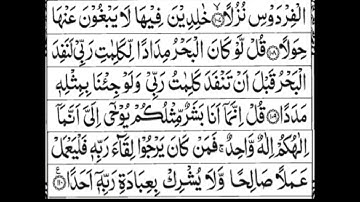 الْفِرْدَوْسِ نُزُلًا ۙ﴿۱۰۷﴾ خٰلِدِیْنَ فِیْهَا لَا یَبْغُوْنَ عَنْهَا
حِوَلًا ﴿۱۰۸﴾ قُلْ لَّوْ كَانَ الْبَحْرُ مِدَادًا لِّكَلِمٰتِ رَبِّیْ لَنَفِدَ
الْبَحْرُ قَبْلَ اَنْ تَنْفَدَ كَلِمٰتُ رَبِّیْ وَلَوْ جِئْنَا بِمِثْلِهٖ
مَدَدًا ﴿۱۰۹﴾ قُلْ اِنَّمَاۤ اَنَا بَشَرٌ مِّثْلُكُمْ یُوْحٰۤی اِلَیَّ اَنَّمَاۤ
اِلٰهُكُمْ اِلٰهٌ وَّاحِدٌ ۚ فَمَنْ كَانَ یَرْجُوْا لِقَآءَ رَبِّهٖ فَلْیَعْمَلْ
عَمَلًا صَالِحًا وَّلَا یُشْرِكْ بِعِبَادَةِ رَبِّهٖۤ اَحَدًا ﴿۱۱۰﴾ ع